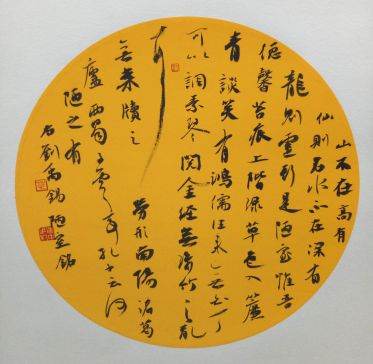 山不在高有
仙则名水不在深有
龍则靈斯是陋室惟吾
德馨苔痕上階绿草色入簾
青談笑有鴻儒往来無白丁
可以調素琴閲金經無絲竹之亂
耳
無案牘之勞形南陽諸葛
廬西蜀子雲亭孔子云何
陋之有
右劉禹锡陋室銘